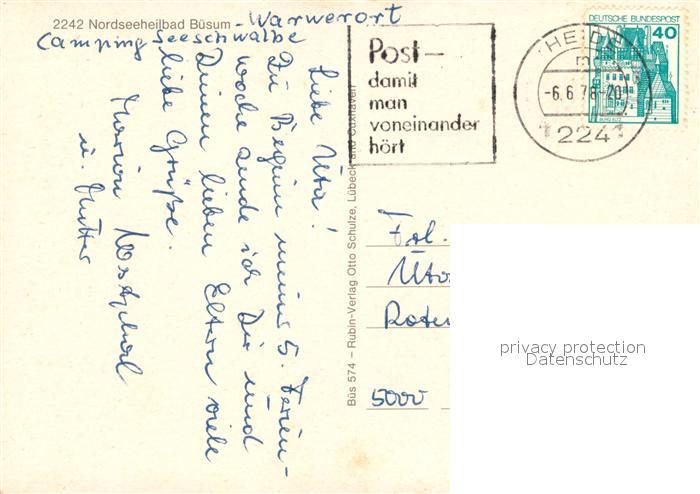 2242 Nordseeheilbad Büsum - Warwerort
Camping Seeschwalbe
Liebe Uta!
Zu Beginn meiner 5. Ferien-
woche sende ich Dir und
Deinen lieben Eltern viele
liebe Grüße.
Marion
u. Mutter
Büs 574 – Rubin-Verlag Otto Schulze, Lübeck and Cuxhaven
Post–
damit
man
voneinander
hört
HEIDE
-6.6.78-20
2241
DEUTSCHE BUNDESPOST
40
BURG ELTZ
Frl.
Uta
Roten
5000
privacy protection
Datenschutz